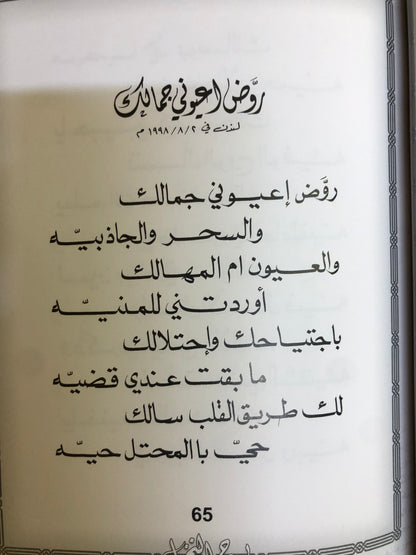 روَّض اعيوني جمالك
لندن في ٢/ ٨/ ١٩٩٨ م
روَّض إعيوني جمالك
والسحر والجاذبيّه
والعيون ام المهالك
أوردتني للمنيّه
باجتياحك وإحتلالك
ما بقت عندي قضيّه
لك طريق القلب سالك
حيّ با المحتل حيّه
65